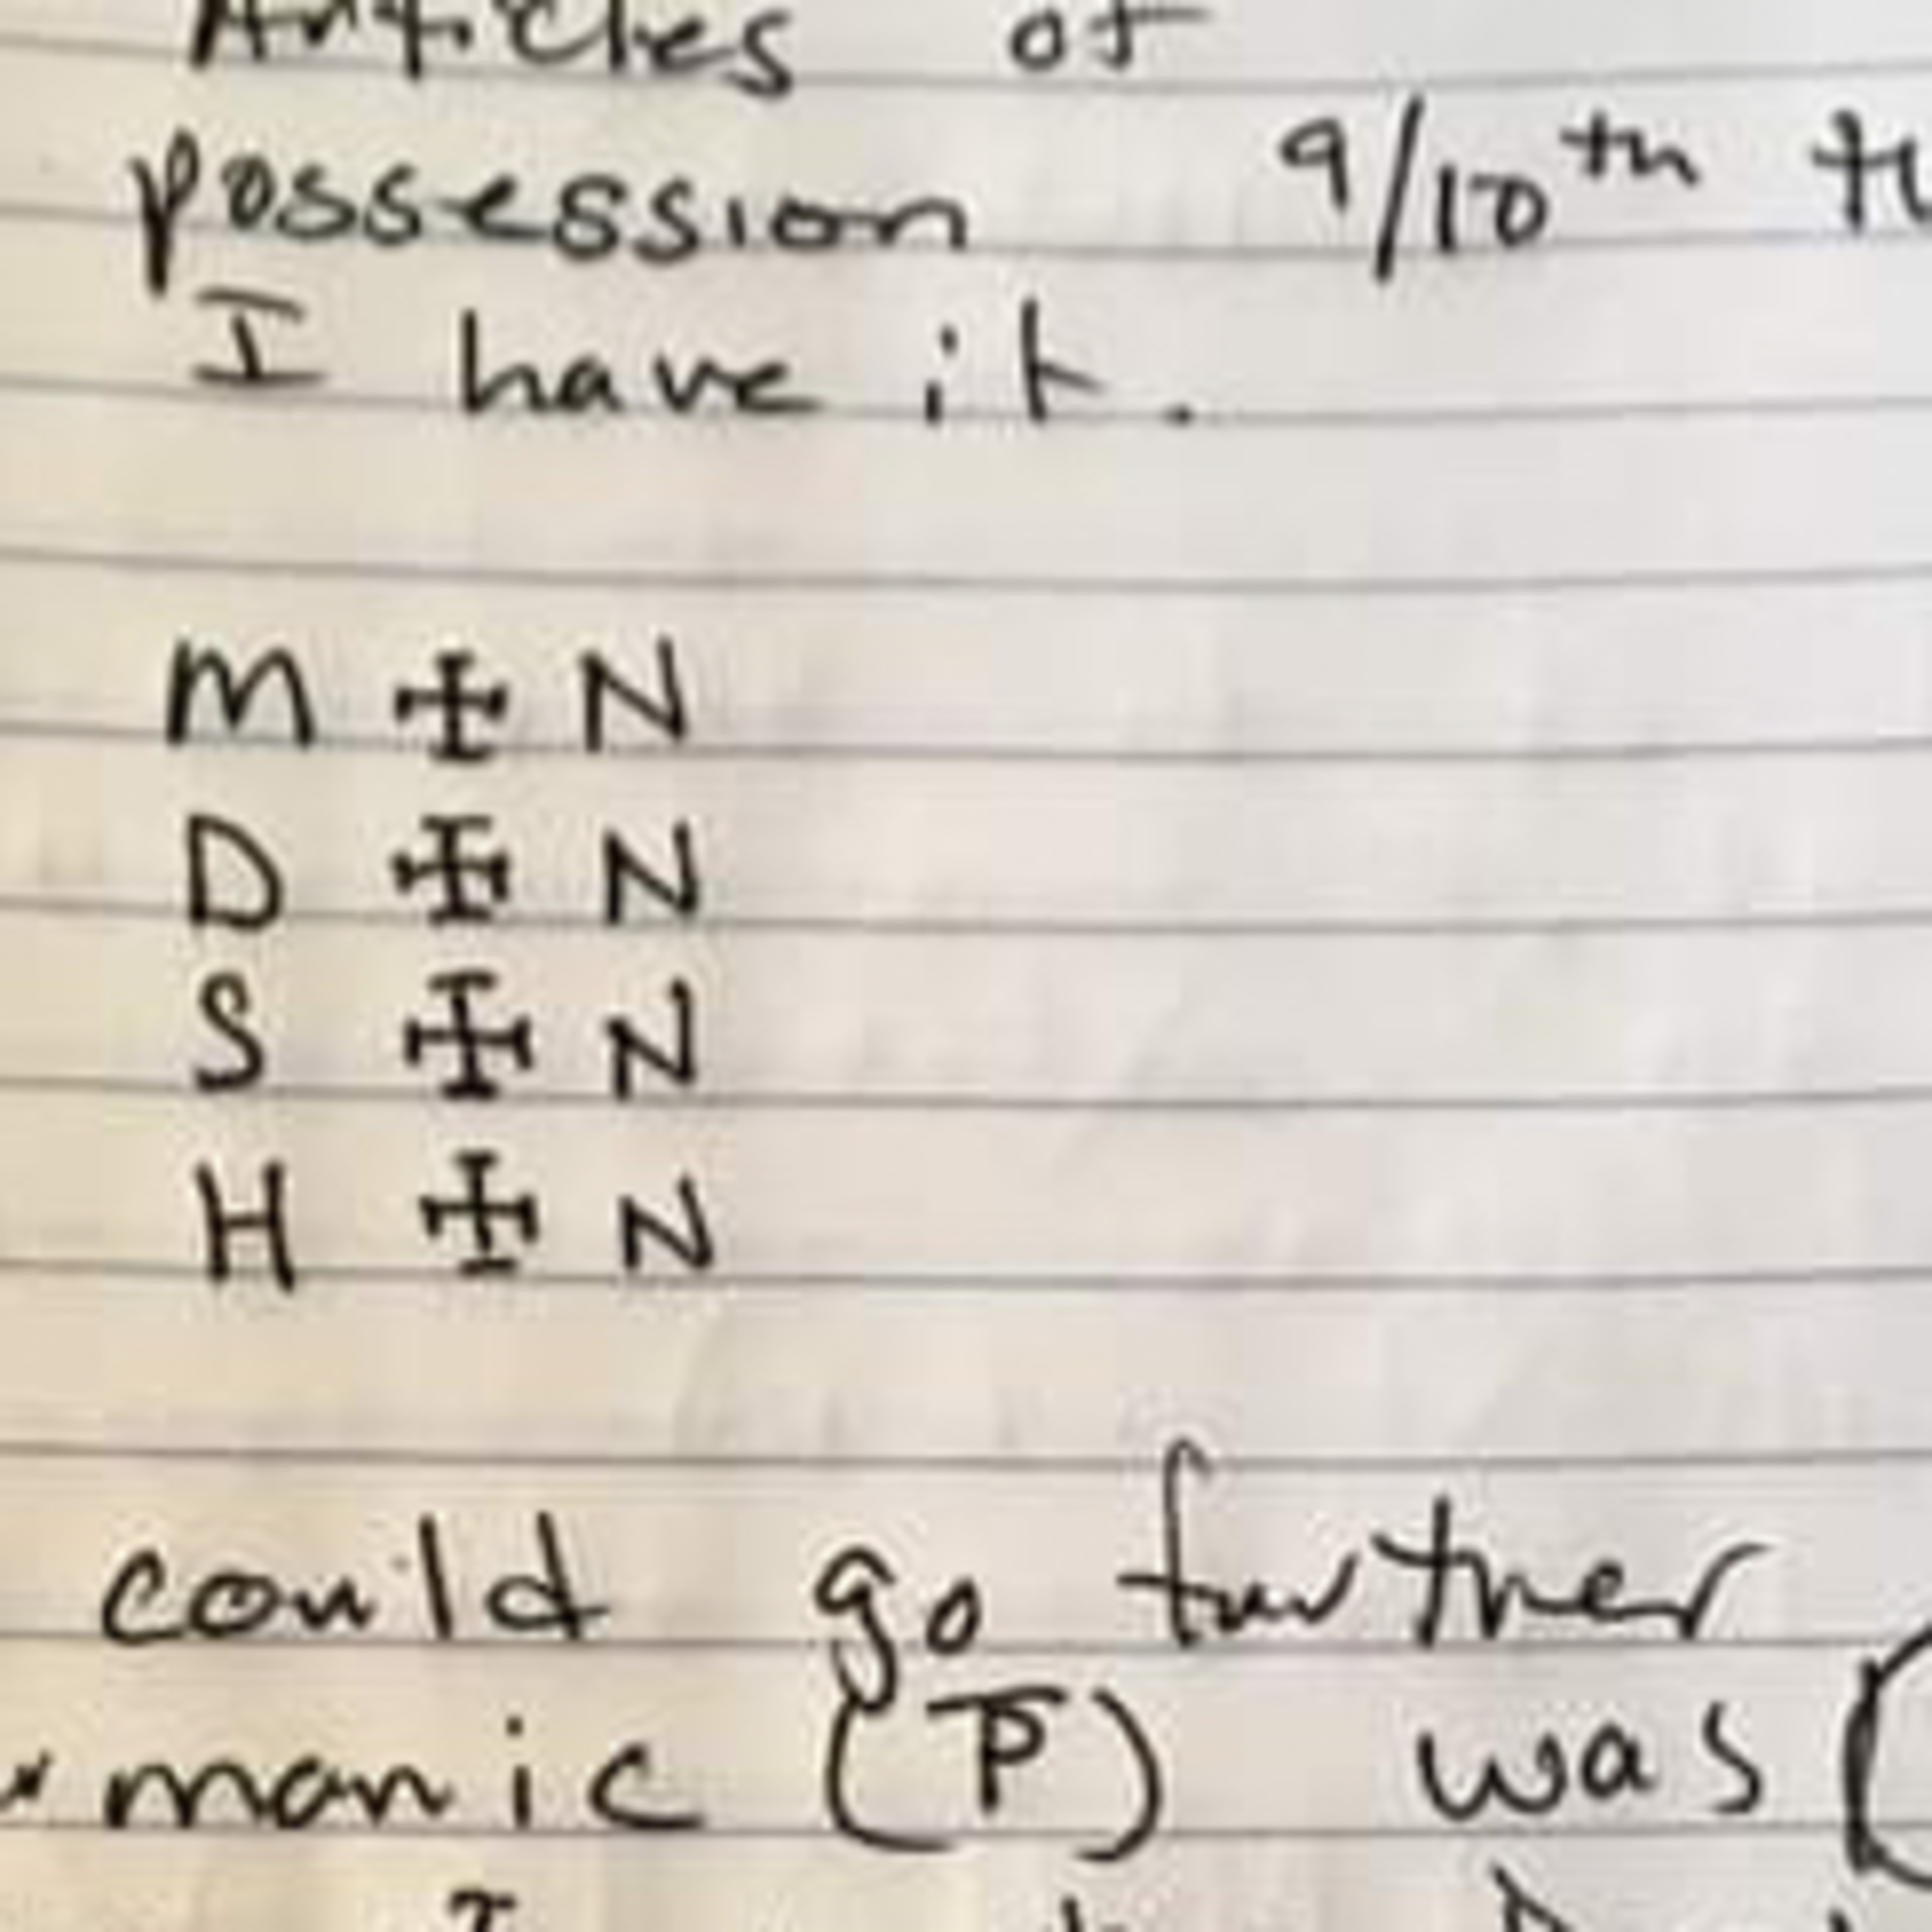 Articles of
possession 9/10th
I have it.
M ✠ N
D ✠ N
S ✠ N
H ✠ N
could go further
manic (P) was